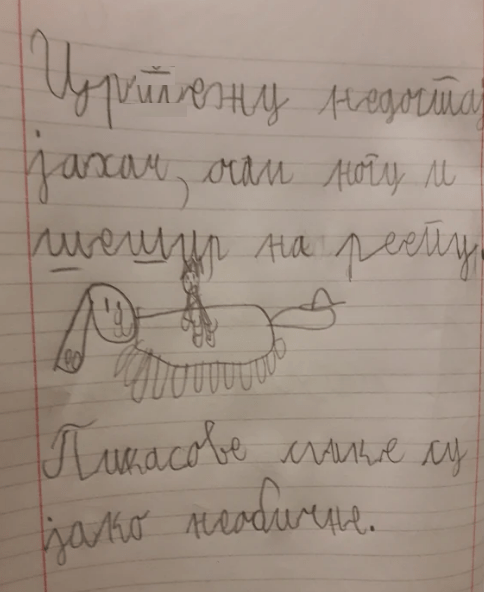 Цртежу недостај
јахач, осам ногу и
шешир на репу.
Пикасове слике су
јако необичне.